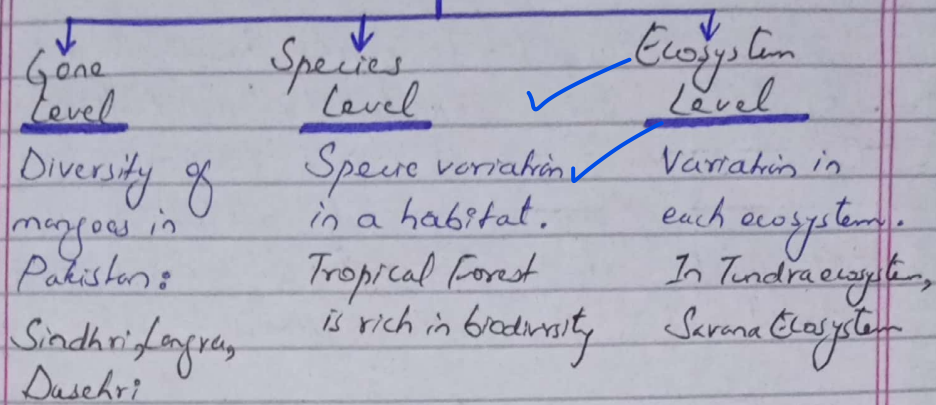 Gone
Level
Diversity of
mangoes in
Pakistan:
Sindhri, Langra,
Dusehri
Species
Level
Specie variation
in a habitat.
Tropical Forest
is rich in biodiversity
Ecosystem
Level
Variation in
each ecosystem.
In Tundra ecosystem,
Savana Ecosystem